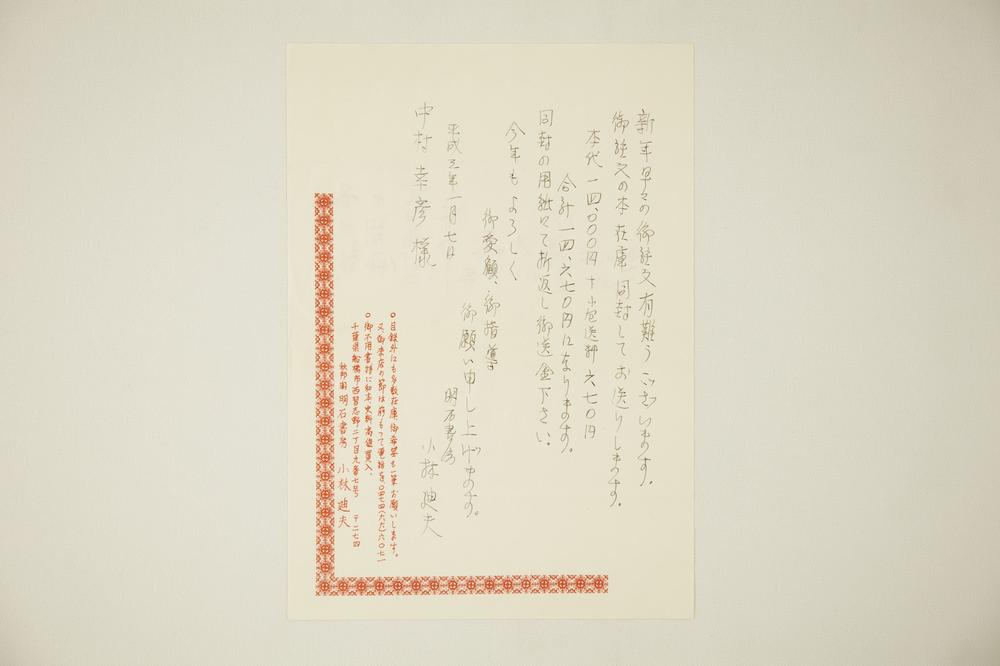 新年早々の御註文有難うございます。
御註文の本在庫同封してお送りします。
本代一四、〇〇〇円+小包送料六七〇円
合計一四、六七〇円になります。
同封の用紙にて折返し御送金下さい。
今年もよろしく
御愛顧、御指導
御願い申し上げます。
平成三年一月七日
明石書房
小林廸夫
中村幸彦様
○目録外にも多数在庫御希望も一筆お願いします。
又御来店の節は前もって電話を〇四七四(六六)六〇七一
○御不用書特に和本史料高価買入、
千葉県船橋市西習志野二丁目九番七号 〒二七四
明石書房 小林廸夫